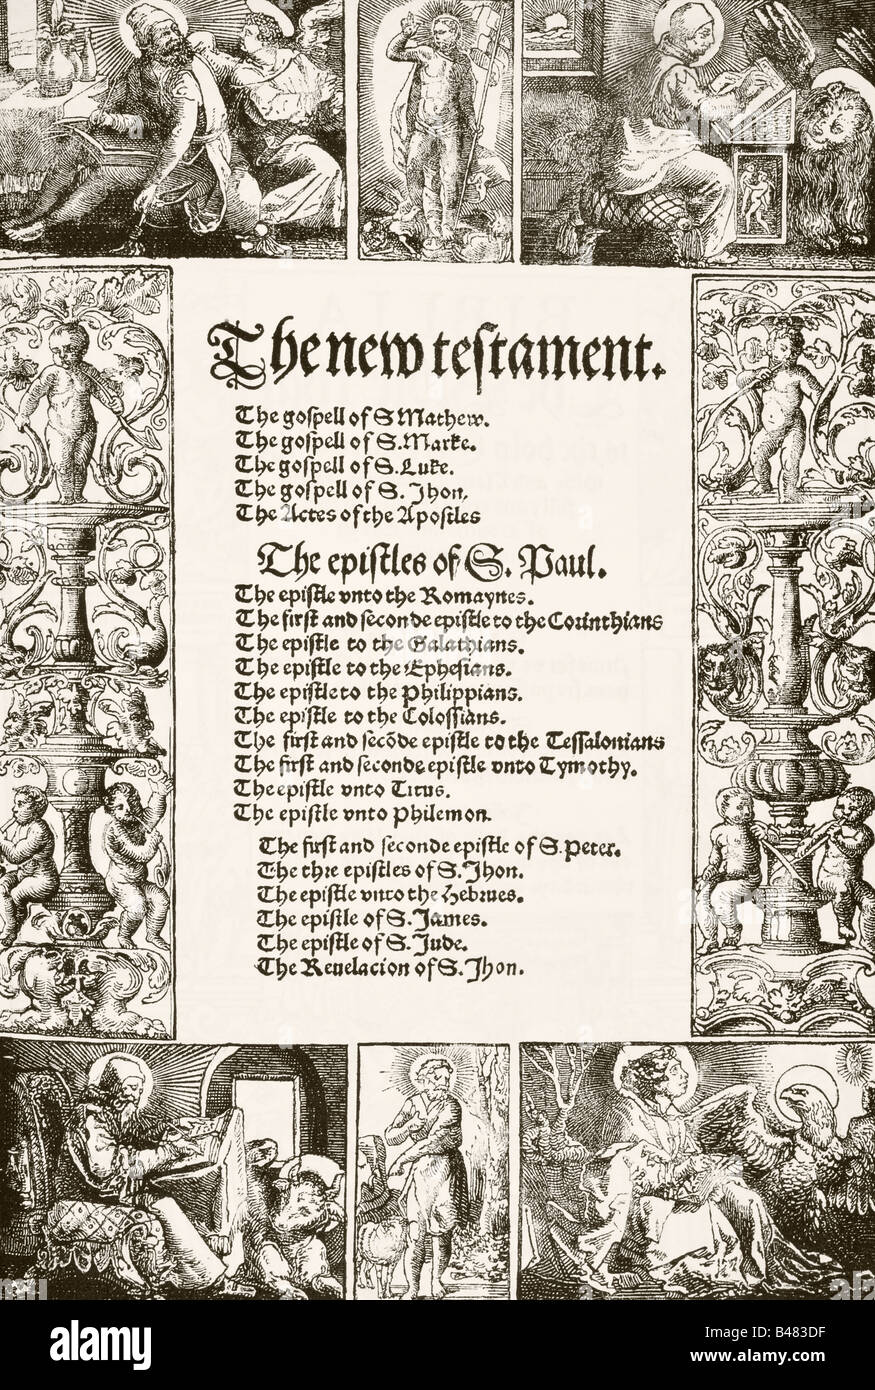 The new testament.
The gospell of S Mathew.
The gospell of S. Marke.
The gospell of S. Luke.
The gospell of S. Jhon.
The Actes of the Apostles
The epistles of S. Paul.
The epistle vnto the Romaynes.
The first and seconde epistle to the Corinthians
The epistle to the Galathians.
The epistle to the Ephesians.
The epistle to the Philippians.
The epistle to the Colossians.
The first and secõde epistle to the Tessalonians
The first and seconde epistle vnto Tymothy.
The epistle vnto Titus.
The epistle vnto Philemon.
The first and seconde epistle of S. Peter.
The thre epistles of S. Jhon.
The epistle vnto the Hebrues.
The epistle of S. James.
The epistle of S. Jude.
The Reuelacion of S. Jhon.
alamy
Image ID: B483DF
www.alamy.com